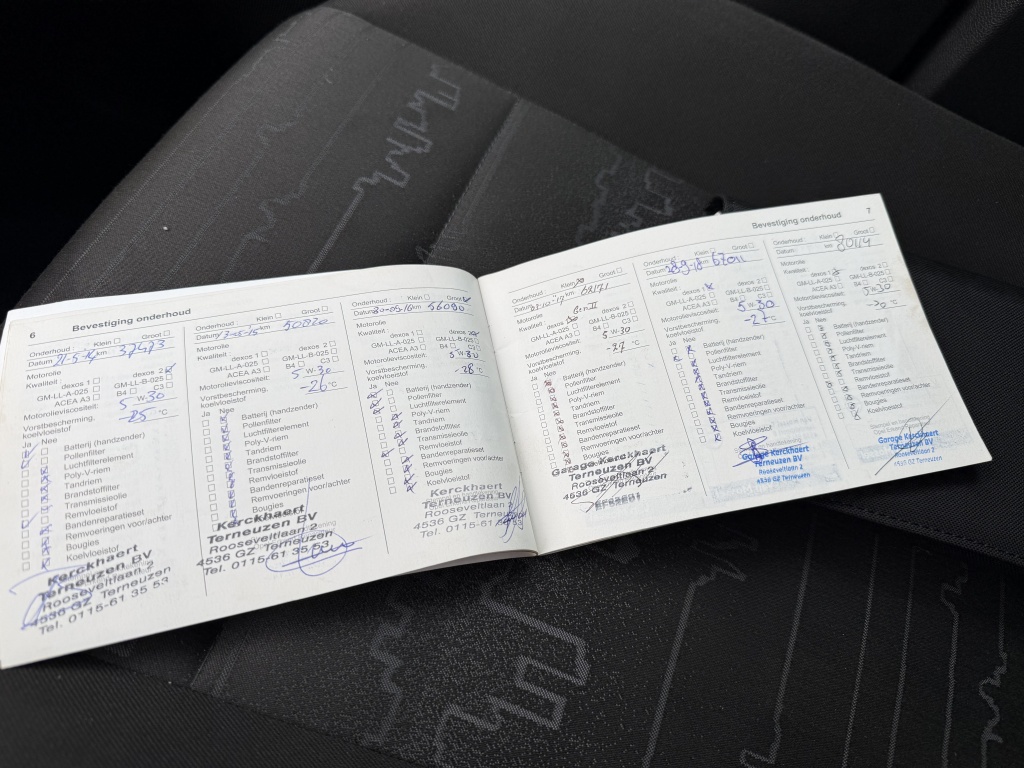 6 Bevestiging onderhoud
Onderhoud : Klein Groot
Datum 21-5-14 km 37473
Motorolie
Kwaliteit : dexos 1 dexos 2
GM-LL-A-025 GM-LL-B-025
ACEA A3 C3
Motorolieviscositeit: 5 W 30
Vorstbescherming,
koelvloeistof -25 °C
Ja Nee
Batterij (handzender)
Pollenfilter
Luchtfilterelement
Poly-V-riem
Tandriem
Brandstoffilter
Transmissieolie
Remvloeistof
Bandenreparatieset
Remvoeringen voor/achter
Bougies
Koelvloeistof
Kerckhaert
Terneuzen BV
Rooseveltlaan 2
4536 GZ Terneuzen
Tel. 0115-61 35 53
Onderhoud : Klein Groot
Datum km 50820
Motorolie
Kwaliteit : dexos 1 dexos 2
GM-LL-A-025 GM-LL-B-025
ACEA A3 C3
Motorolieviscositeit: 5 W 30
Vorstbescherming,
koelvloeistof -26 °C
Ja Nee
Batterij (handzender)
Pollenfilter
Luchtfilterelement
Poly-V-riem
Tandriem
Brandstoffilter
Transmissieolie
Remvloeistof
Bandenreparatieset
Remvoeringen voor/achter
Bougies
Kerckhaert
Terneuzen BV
Rooseveltlaan 2
4536 GZ Terneuzen
Tel. 0115-61 35 53
Onderhoud : Klein Groot
Datum km 56090
Motorolie
Kwaliteit : dexos 1 dexos 2
GM-LL-A-025 GM-LL-B-025
ACEA A3 B4 C3
Motorolieviscositeit: 5 W 30
Vorstbescherming,
koelvloeistof -28 °C
Ja Nee
Batterij (handzender)
Pollenfilter
Luchtfilterelement
Poly-V-riem
Tandriem
Brandstoffilter
Transmissieolie
Remvloeistof
Bandenreparatieset
Remvoeringen voor/achter
Bougies
Koelvloeistof
Kerckhaert
Terneuzen BV
Rooseveltlaan 2
4536 GZ Terneuzen
Tel. 0115-61
Bevestiging onderhoud 7
Onderhoud : Klein Groot
Datum km
Motorolie
Kwaliteit : dexos
GM-LL-A-025 GM-LL-B-025
ACEA A3 B4 C3
Motorolieviscositeit: 5 W 30
Vorstbescherming,
koelvloeistof -27 °C
Ja Nee
Batterij (handzender)
Pollenfilter
Luchtfilterelement
Poly-V-riem
Tandriem
Brandstoffilter
Transmissieolie
Remvloeistof
Bandenreparatieset
Remvoeringen voor/achter
Bougies
Garage Kerckhaert
Terneuzen BV
Rooseveltlaan 2
4536 GZ Terneuzen
Onderhoud : Klein Groot
Datum 28-9-18 km 67011
Motorolie
Kwaliteit : dexos 1 dexos 2
GM-LL-A-025 GM-LL-B-025
ACEA A3 B4 C3
Motorolieviscositeit: 5 W 30
Vorstbescherming,
koelvloeistof -27 °C
Ja Nee
Batterij (handzender)
Pollenfilter
Luchtfilterelement
Poly-V-riem
Tandriem
Brandstoffilter
Transmissieolie
Remvloeistof
Bandenreparatieset
Remvoeringen voor/achter
Bougies
Koelvloeistof
Garage Kerckhaert
Terneuzen BV
Rooseveltlaan 2
4536 GZ Terneuzen
Onderhoud : Klein Groot
Datum km 80114
Motorolie
Kwaliteit : dexos 1 dexos 2
GM-LL-A-025 GM-LL-B-025
ACEA A3 B4 C3
Motorolieviscositeit: 5 W 30
Vorstbescherming,
koelvloeistof °C
Ja Nee
Batterij (handzender)
Pollenfilter
Luchtfilterelement
Poly-V-riem
Tandriem
Brandstoffilter
Transmissieolie
Remvloeistof
Bandenreparatieset
Remvoeringen voor/achter
Bougies
Koelvloeistof
Garage Kerckhaert
Terneuzen BV
Rooseveltlaan 2
4536 GZ Terneuzen